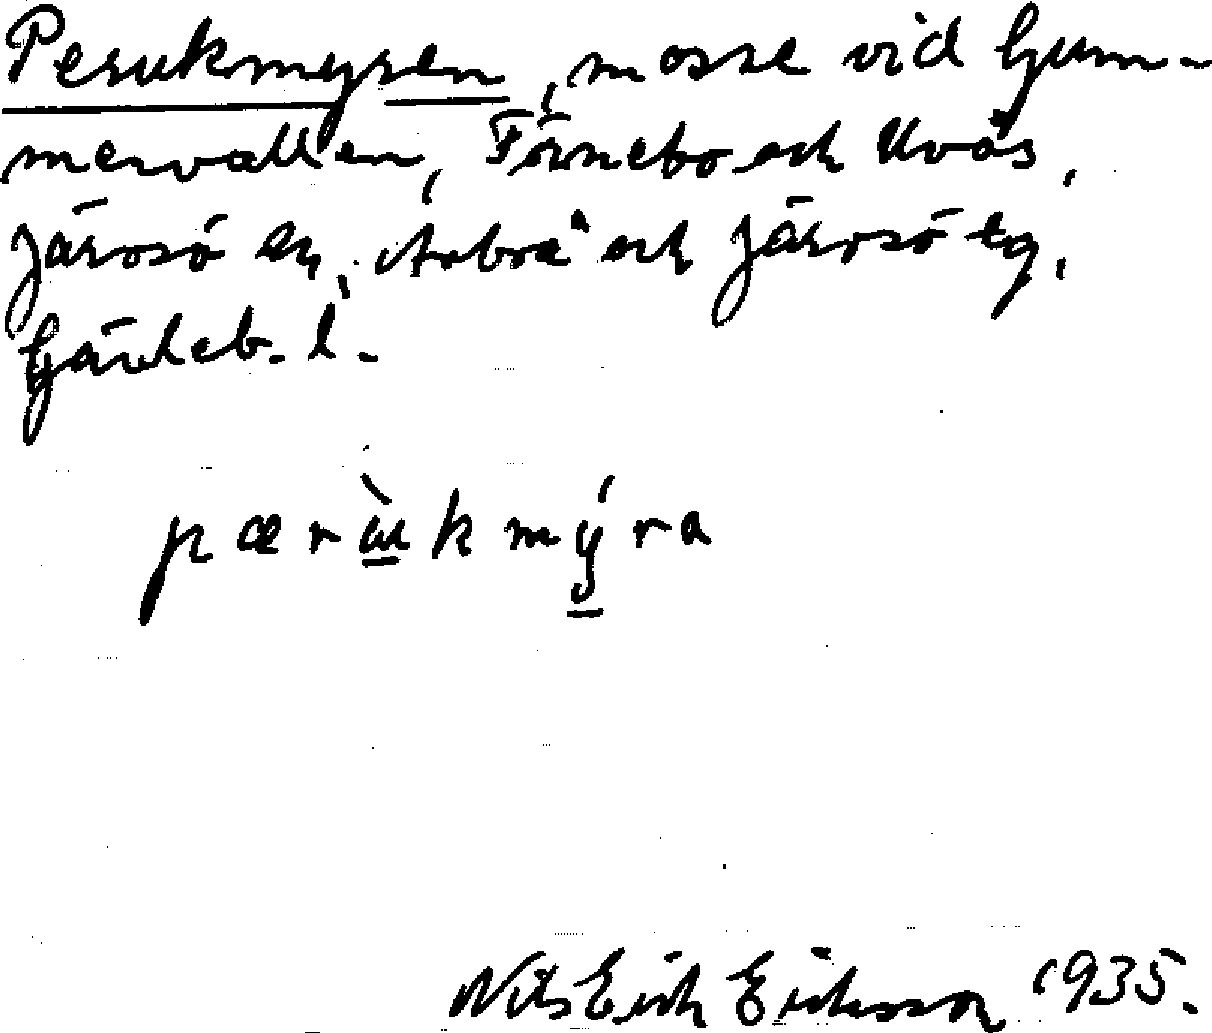 Perukmyren, mosse vid Gum-
mervallen, Förnebo och Uvås,
Järvsö sn, Arbrå och Järvsö tg,
Gävleb. l.
pærùkmýra
Nils Erik Eriksson 1935.